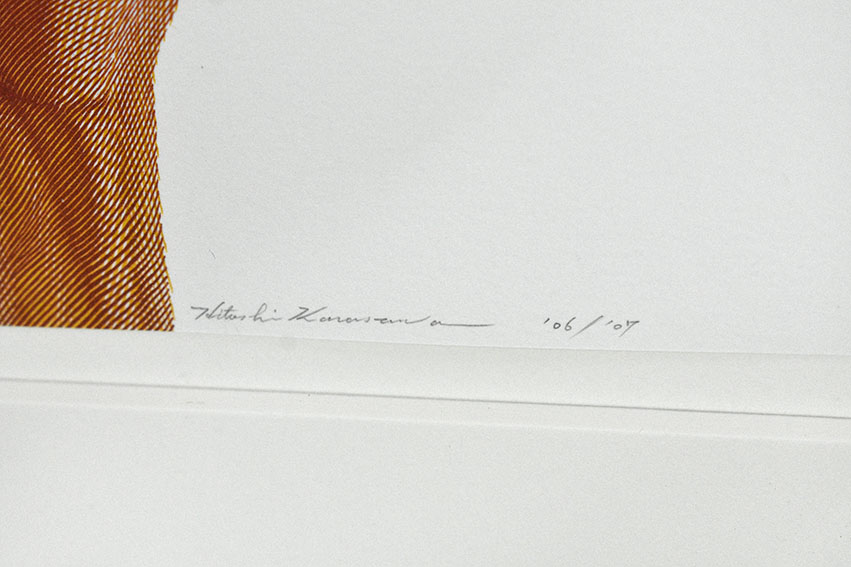 Hitoshi Karasawa '06/'07